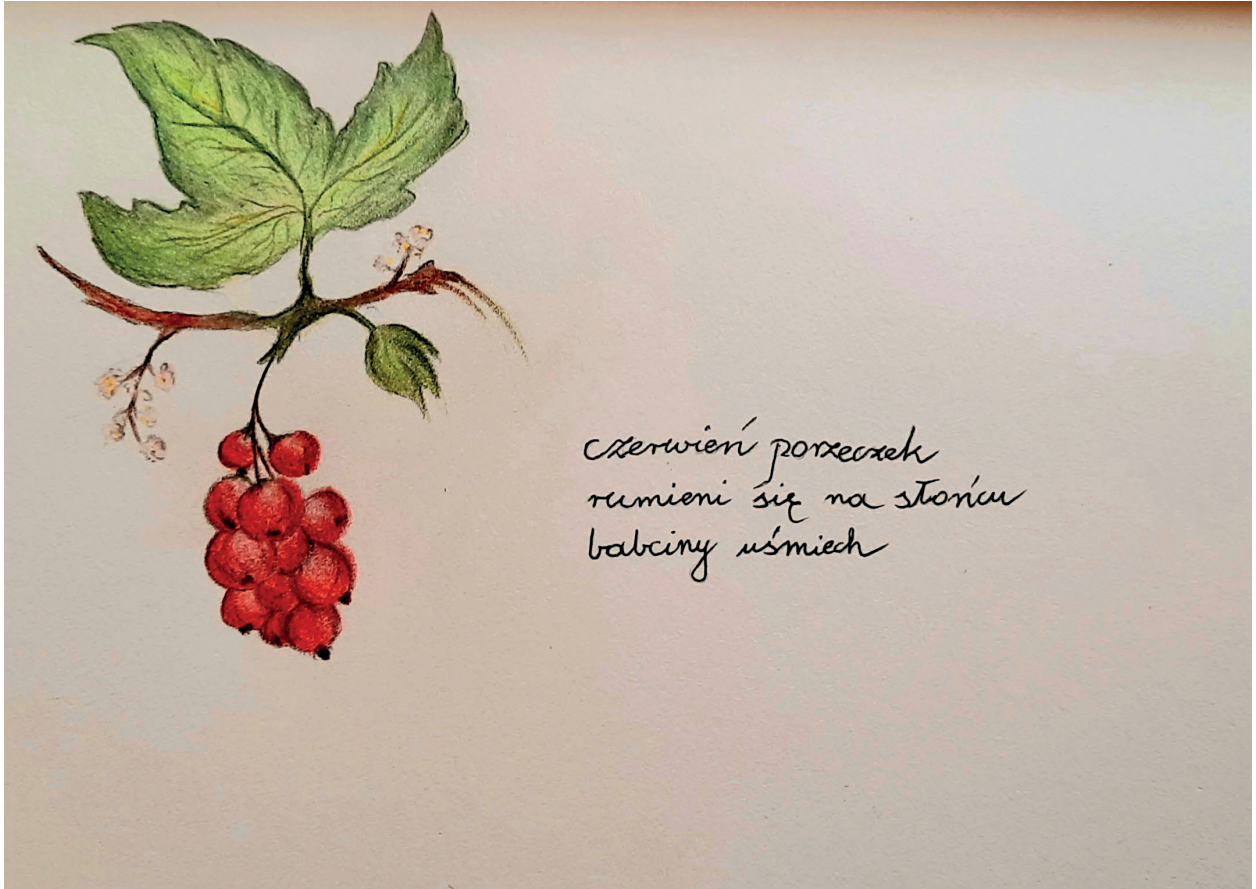 czerwień porzeczek
rumieni się na słońcu
babciny uśmiech